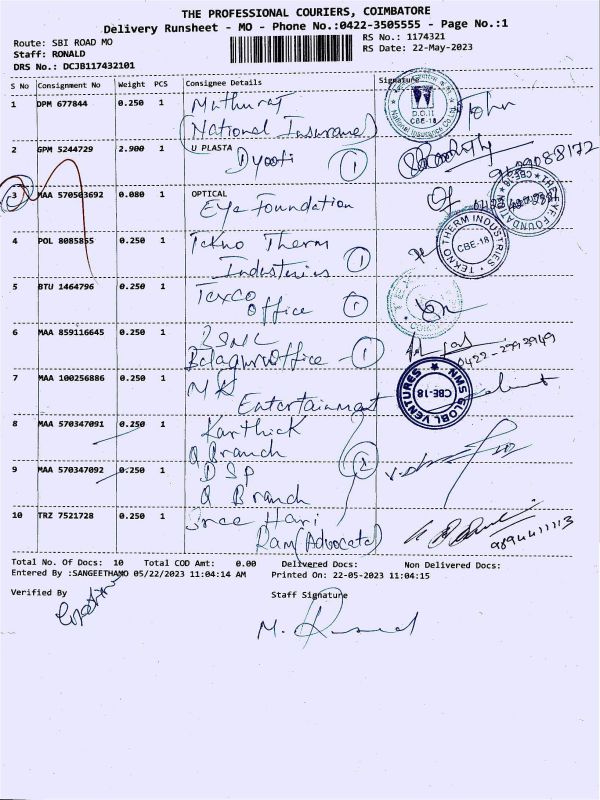 THE PROFESSIONAL COURIERS, COIMBATORE
Delivery Runsheet - MO - Phone No.:0422-3505555 - Page No.:1
Route: SBI ROAD MO
RS No.: 1174321
Staff: RONALD
RS Date: 22-May-2023
DRS No.: DCJB117432101
S No Consignment No Weight PCS Consignee Details Signature
1 DPM 677844 0.250 1 Muthuraj
(National Insurance)
D.O.II
CBE-18
2 GPM 5244729 2.900 1 U PLASTA
Dyooti 1
3 MAA 570503692 0.080 1 OPTICAL
Eye Foundation
CBE-18
4 POL 8085855 0.250 1 Tekno Therm
Industries 1
TEKNO THERM INDUSTRIES
CBE-18
5 BTU 1464796 0.250 1 Texco
office 1
6 MAA 859116645 0.250 1 BSNL
office - 1
0422-2793949
7 MAA 100256886 0.250 1 MK
Entertainment
NMS GLOBL VENTURES
CBE-18
8 MAA 570347091 0.250 1 Karthick
Q Branch
9 MAA 570347092 0.250 1 DSP
Q Branch
10 TRZ 7521728 0.250 1 Sree Hari
Ram (Advocate)
Total No. Of Docs: 10 Total COD Amt: 0.00 Delivered Docs: Non Delivered Docs:
Entered By :SANGEETHAMO 05/22/2023 11:04:14 AM Printed On: 22-05-2023 11:04:15
Verified By Staff Signature